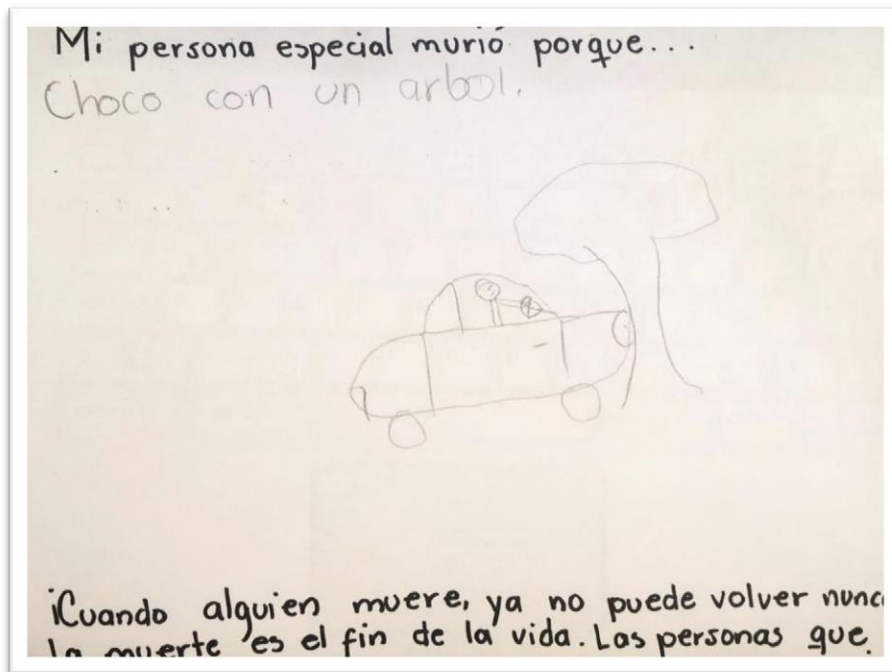 Mi persona especial murió porque...
Choco con un arbol.
¡Cuando alguien muere, ya no puede volver nunca
La muerte es el fin de la vida. Las personas que